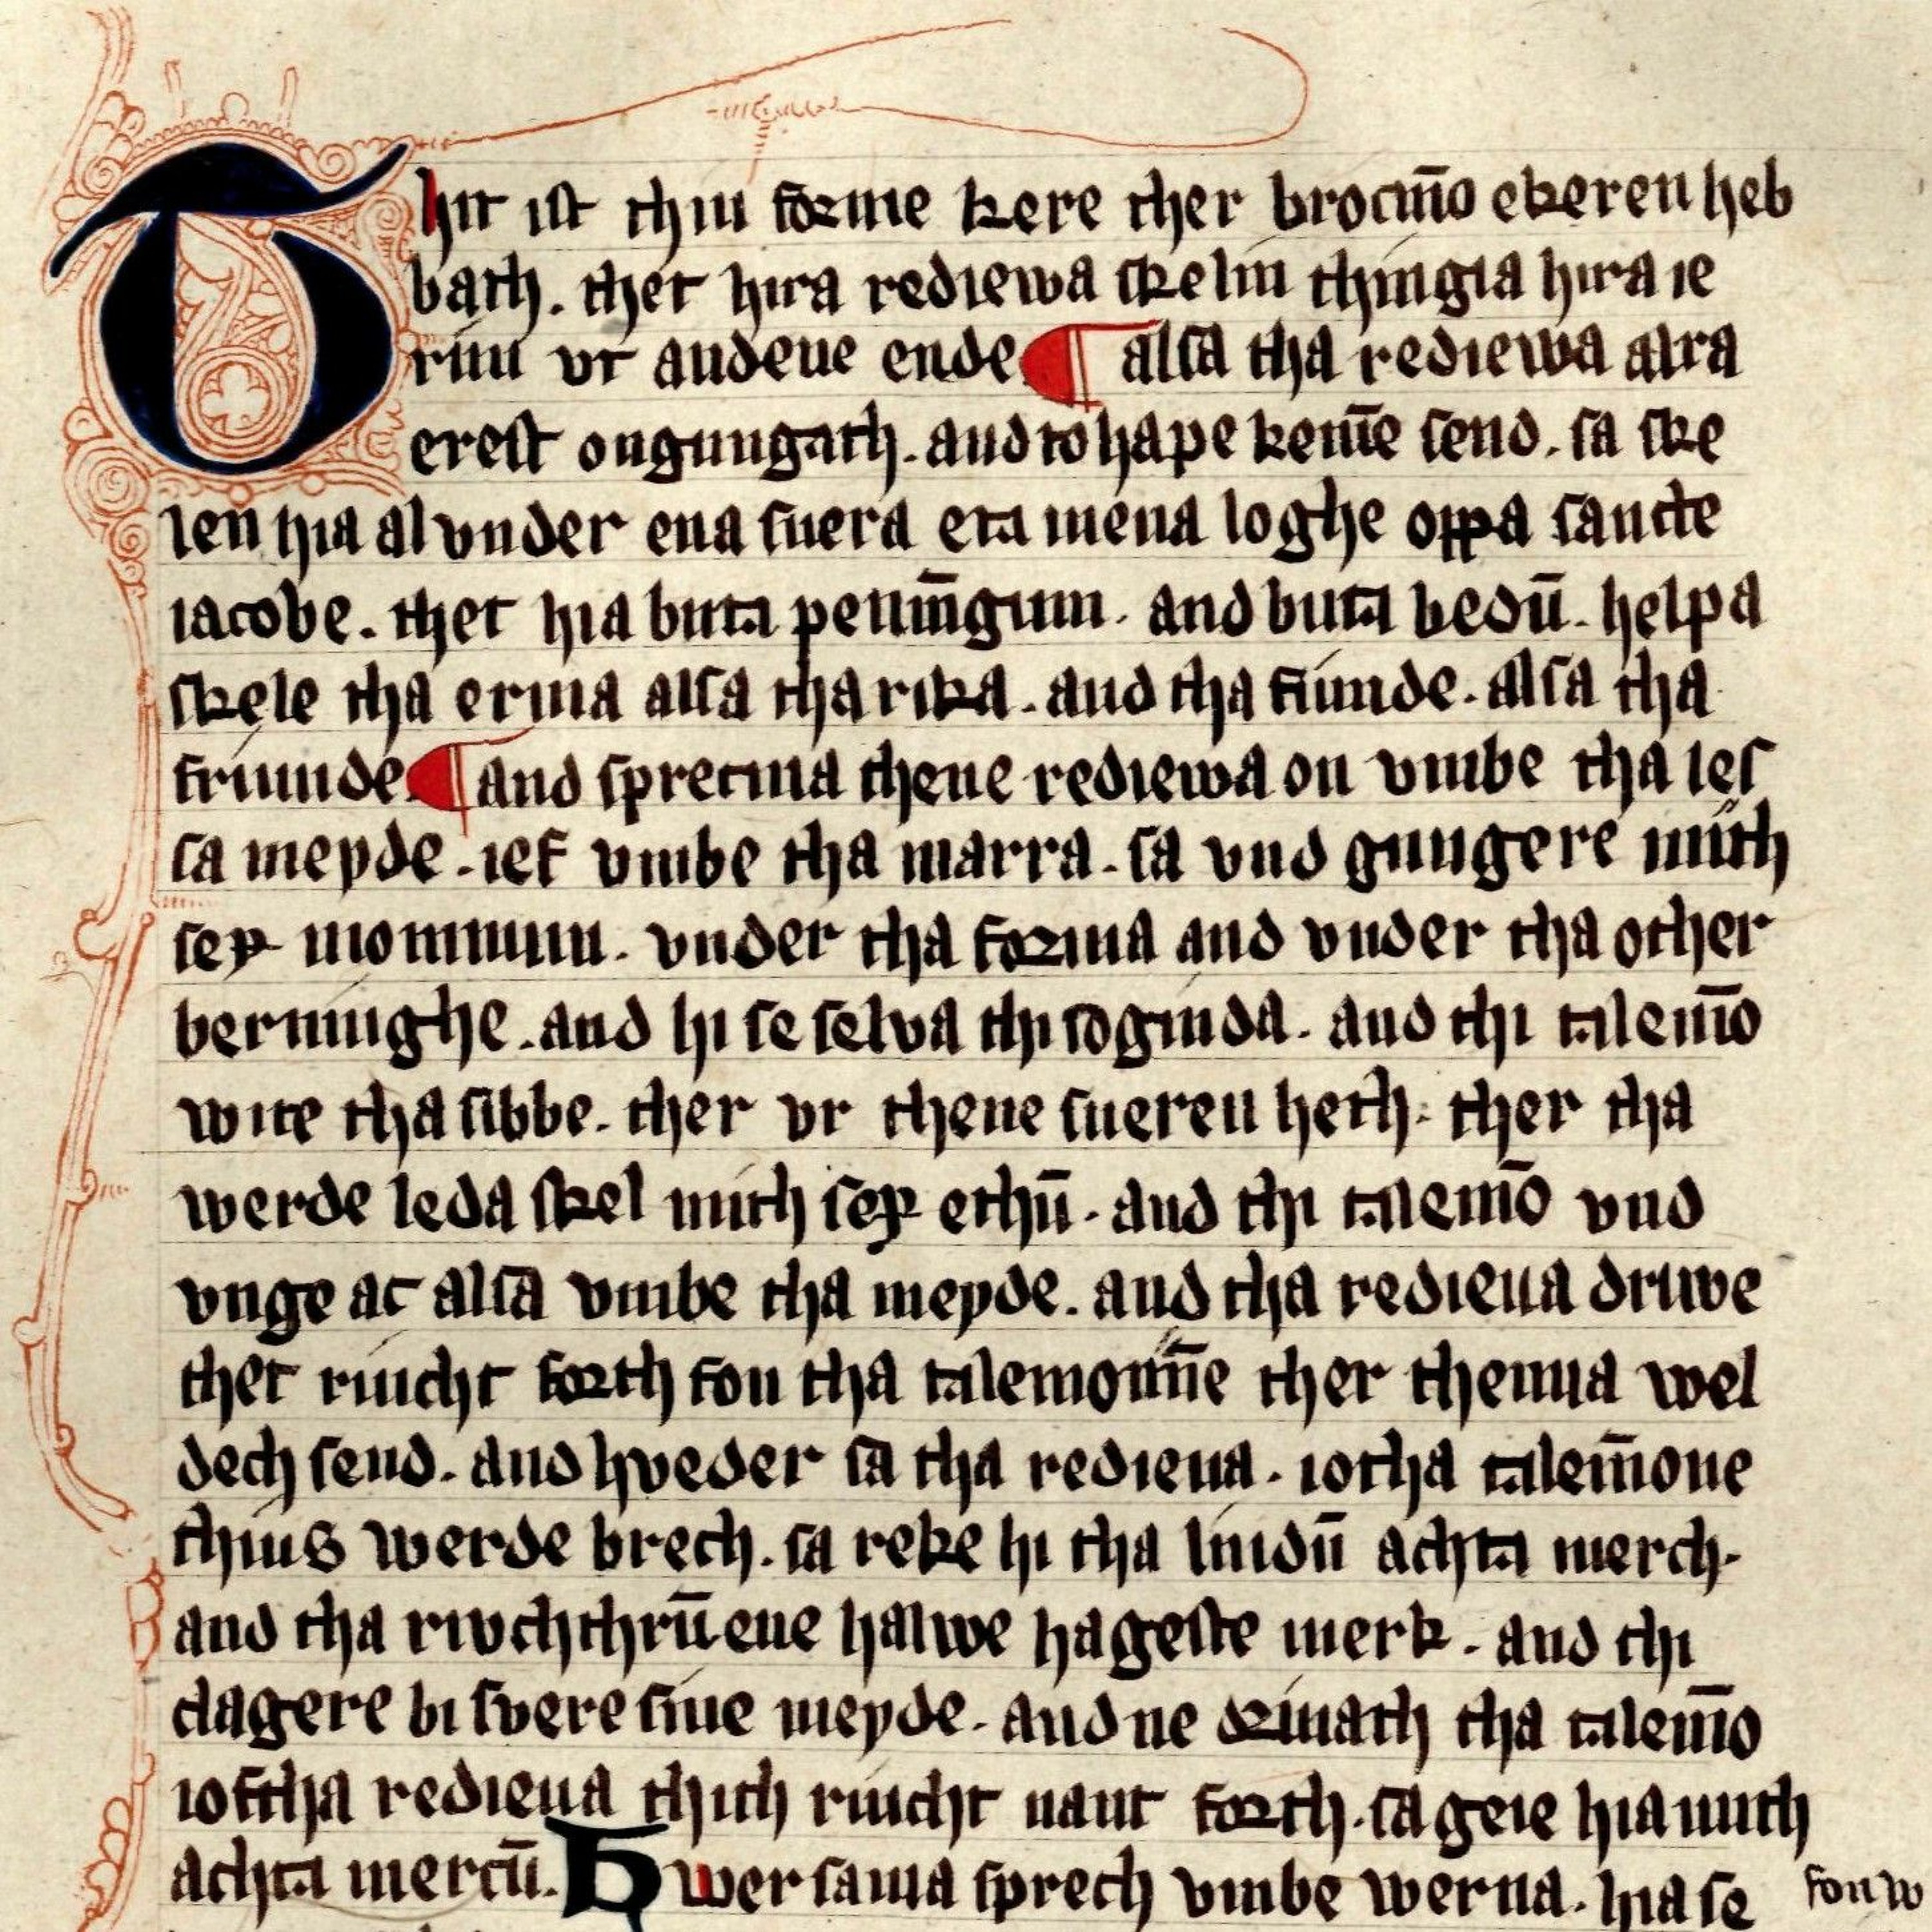 Thit ist thiu forme kere ther brocmẽn ekeren heb
bath. thet hira rediewa skelin thingia hira ie
rim ut andeue ende. ¶ alsa tha rediewa alra
erest ongungath. and to hape kemẽ send. sa ske
len hia al vnder ena suera eta mena loghe oppa sancte
iacobe. thet hia buta penniḡum. and buta bedū. helpa
skele tha erma alsa tha rika. and tha fiunde. alsa tha
friunde. ¶ and spretma thene rediewa on vmbe tha les
sa meyde. ief vmbe tha marra. sa vnd gungere mith
sex monnum. vnder tha forma and vnder tha other
berninghe. and hi se selva thi toginda. and thi talemō
wite tha sibbe. ther ur thene sueren heth. ther tha
werde leda skel mith sex ethū. and thi talemō vnd
vnge ac alsa vmbe tha meyde. and tha redieua driwe
thet riucht forth fon tha talemonnē ther thenna wel
dech send. and hveder sa tha redieua. iotha talem̄one
thius werde brech. sa reke hi tha liudū achta merch.
and tha rivchthrū ene halwe hageste merk. and thi
clagere bi svere sine meyde. and ne driuath tha talemō
ioftha redieua thith riucht naut forth. sa geie hia mith
achta mercū. Hwersama sprech vmbe werna. hia se
fon w